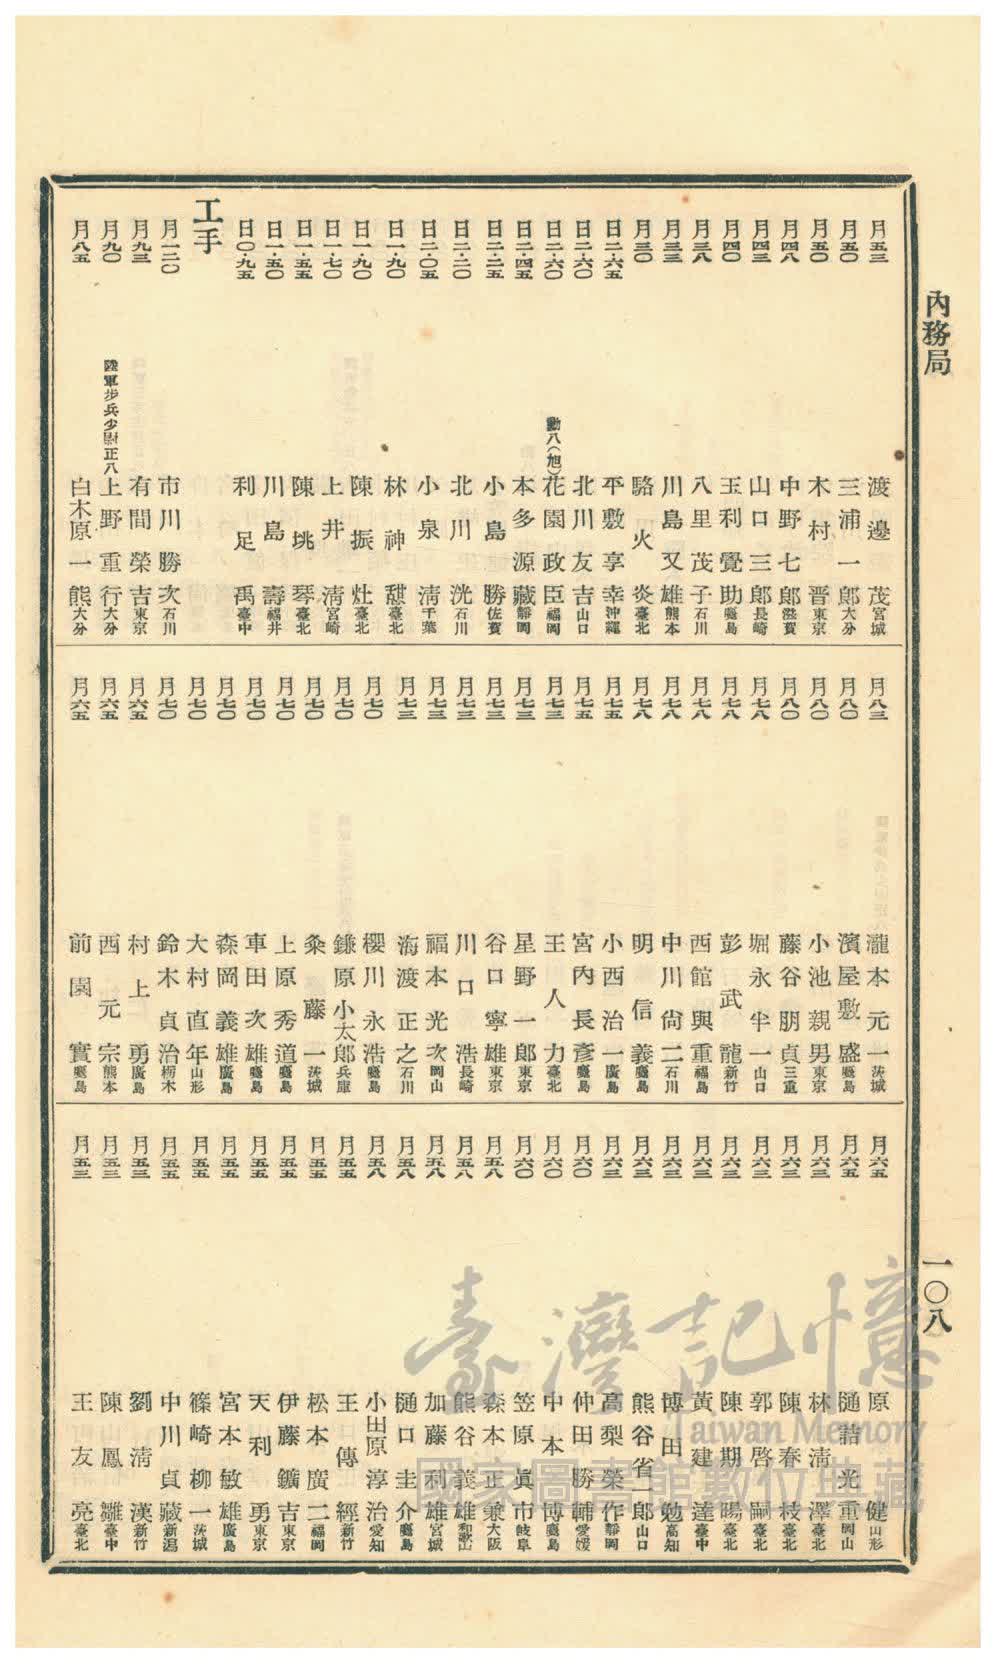 內務局
一〇八
月五三 渡邊茂 宮城
月五〇 三浦一郎 大分
月五〇 木村晋 東京
月四八 中野七郎 滋賀
月四三 山口三郎 長崎
月四〇 玉利覺助 鹿兒島
月三八 八里茂子 石川
月三三 川島又雄 熊本
月三〇 駱火炎 臺北
日二・六五 平敷享幸 沖繩
日二・六〇 北川友吉 山口
日二・六〇 勳八(旭) 花園政臣 福岡
日二・四五 本多源藏 靜岡
日二・二五 小島勝 佐賀
日二・二〇 北川洸 石川
日二・〇五 小泉清 千葉
日一・九〇 林神甜 臺北
日一・九〇 陳振灶 臺北
日一・七〇 上井清 宮崎
日一・五五 陳珧琴 臺北
日一・五〇 川島壽 福井
日〇・九五 利足禹 臺中
工手
月一二〇 市川勝次 石川
月九三 有間榮吉 東京
月九〇 陸軍步兵少尉正八 上野重行 大分
月八五 白木原一熊 大分
月八三 瀧本元一 茨城
月八〇 濱屋敷盛 鹿兒島
月八〇 小池親男 東京
月八〇 藤谷朋貞 三重
月七八 堀永半一 山口
月七八 彭武龍 新竹
月七八 西館與重 福島
月七八 中川尙二 石川
月七八 明信義 鹿兒島
月七五 小西治一 廣島
月七五 宮內長彥 鹿兒島
月七三 王人力 臺北
月七三 星野一郎 東京
月七三 谷口寧雄 東京
月七三 川口浩 長崎
月七三 福本光次 岡山
月七三 海渡正之 石川
月七〇 櫻川永浩 鹿兒島
月七〇 鎌原小太郎 兵庫
月七〇 粂藤一 茨城
月七〇 上原秀道 鹿兒島
月七〇 車田次雄 福島
月七〇 森岡義雄 廣島
月七〇 大村直年 山形
月七〇 鈴木貞治 栃木
月六五 村上勇 廣島
月六五 西元宗 熊本
月六五 前園實 鹿兒島
月六五 原健 山形
月六五 樋詰光重 岡山
月六三 林清澤 臺北
月六三 陳春枝 臺北
月六三 郭啓嗣 臺北
月六三 陳期暘 臺北
月六三 黃建達 臺中
月六三 博田勉 高知
月六三 熊谷省一郎 山口
月六三 高梨榮作 靜岡
月六〇 仲田勝輔 愛媛
月六〇 中本博 鹿兒島
月六〇 笠原眞市 岐阜
月五八 森本正兼 大阪
月五八 熊谷義雄 和歌山
月五八 加藤利雄 宮城
月五八 樋口圭介 鹿兒島
月五八 小田原淳治 愛知
月五五 王傳經 新竹
月五五 松本廣二 福岡
月五五 伊藤鑛吉 東京
月五五 天利勇 東京
月五五 宮本敏雄 廣島
月五五 篠崎柳一 茨城
月五五 中川貞藏 新潟
月五三 劉清漢 新竹
月五三 陳鳳雛 臺中
月五三 王友亮 臺北
臺灣記憶
Taiwan Memory
國家圖書館數位典藏